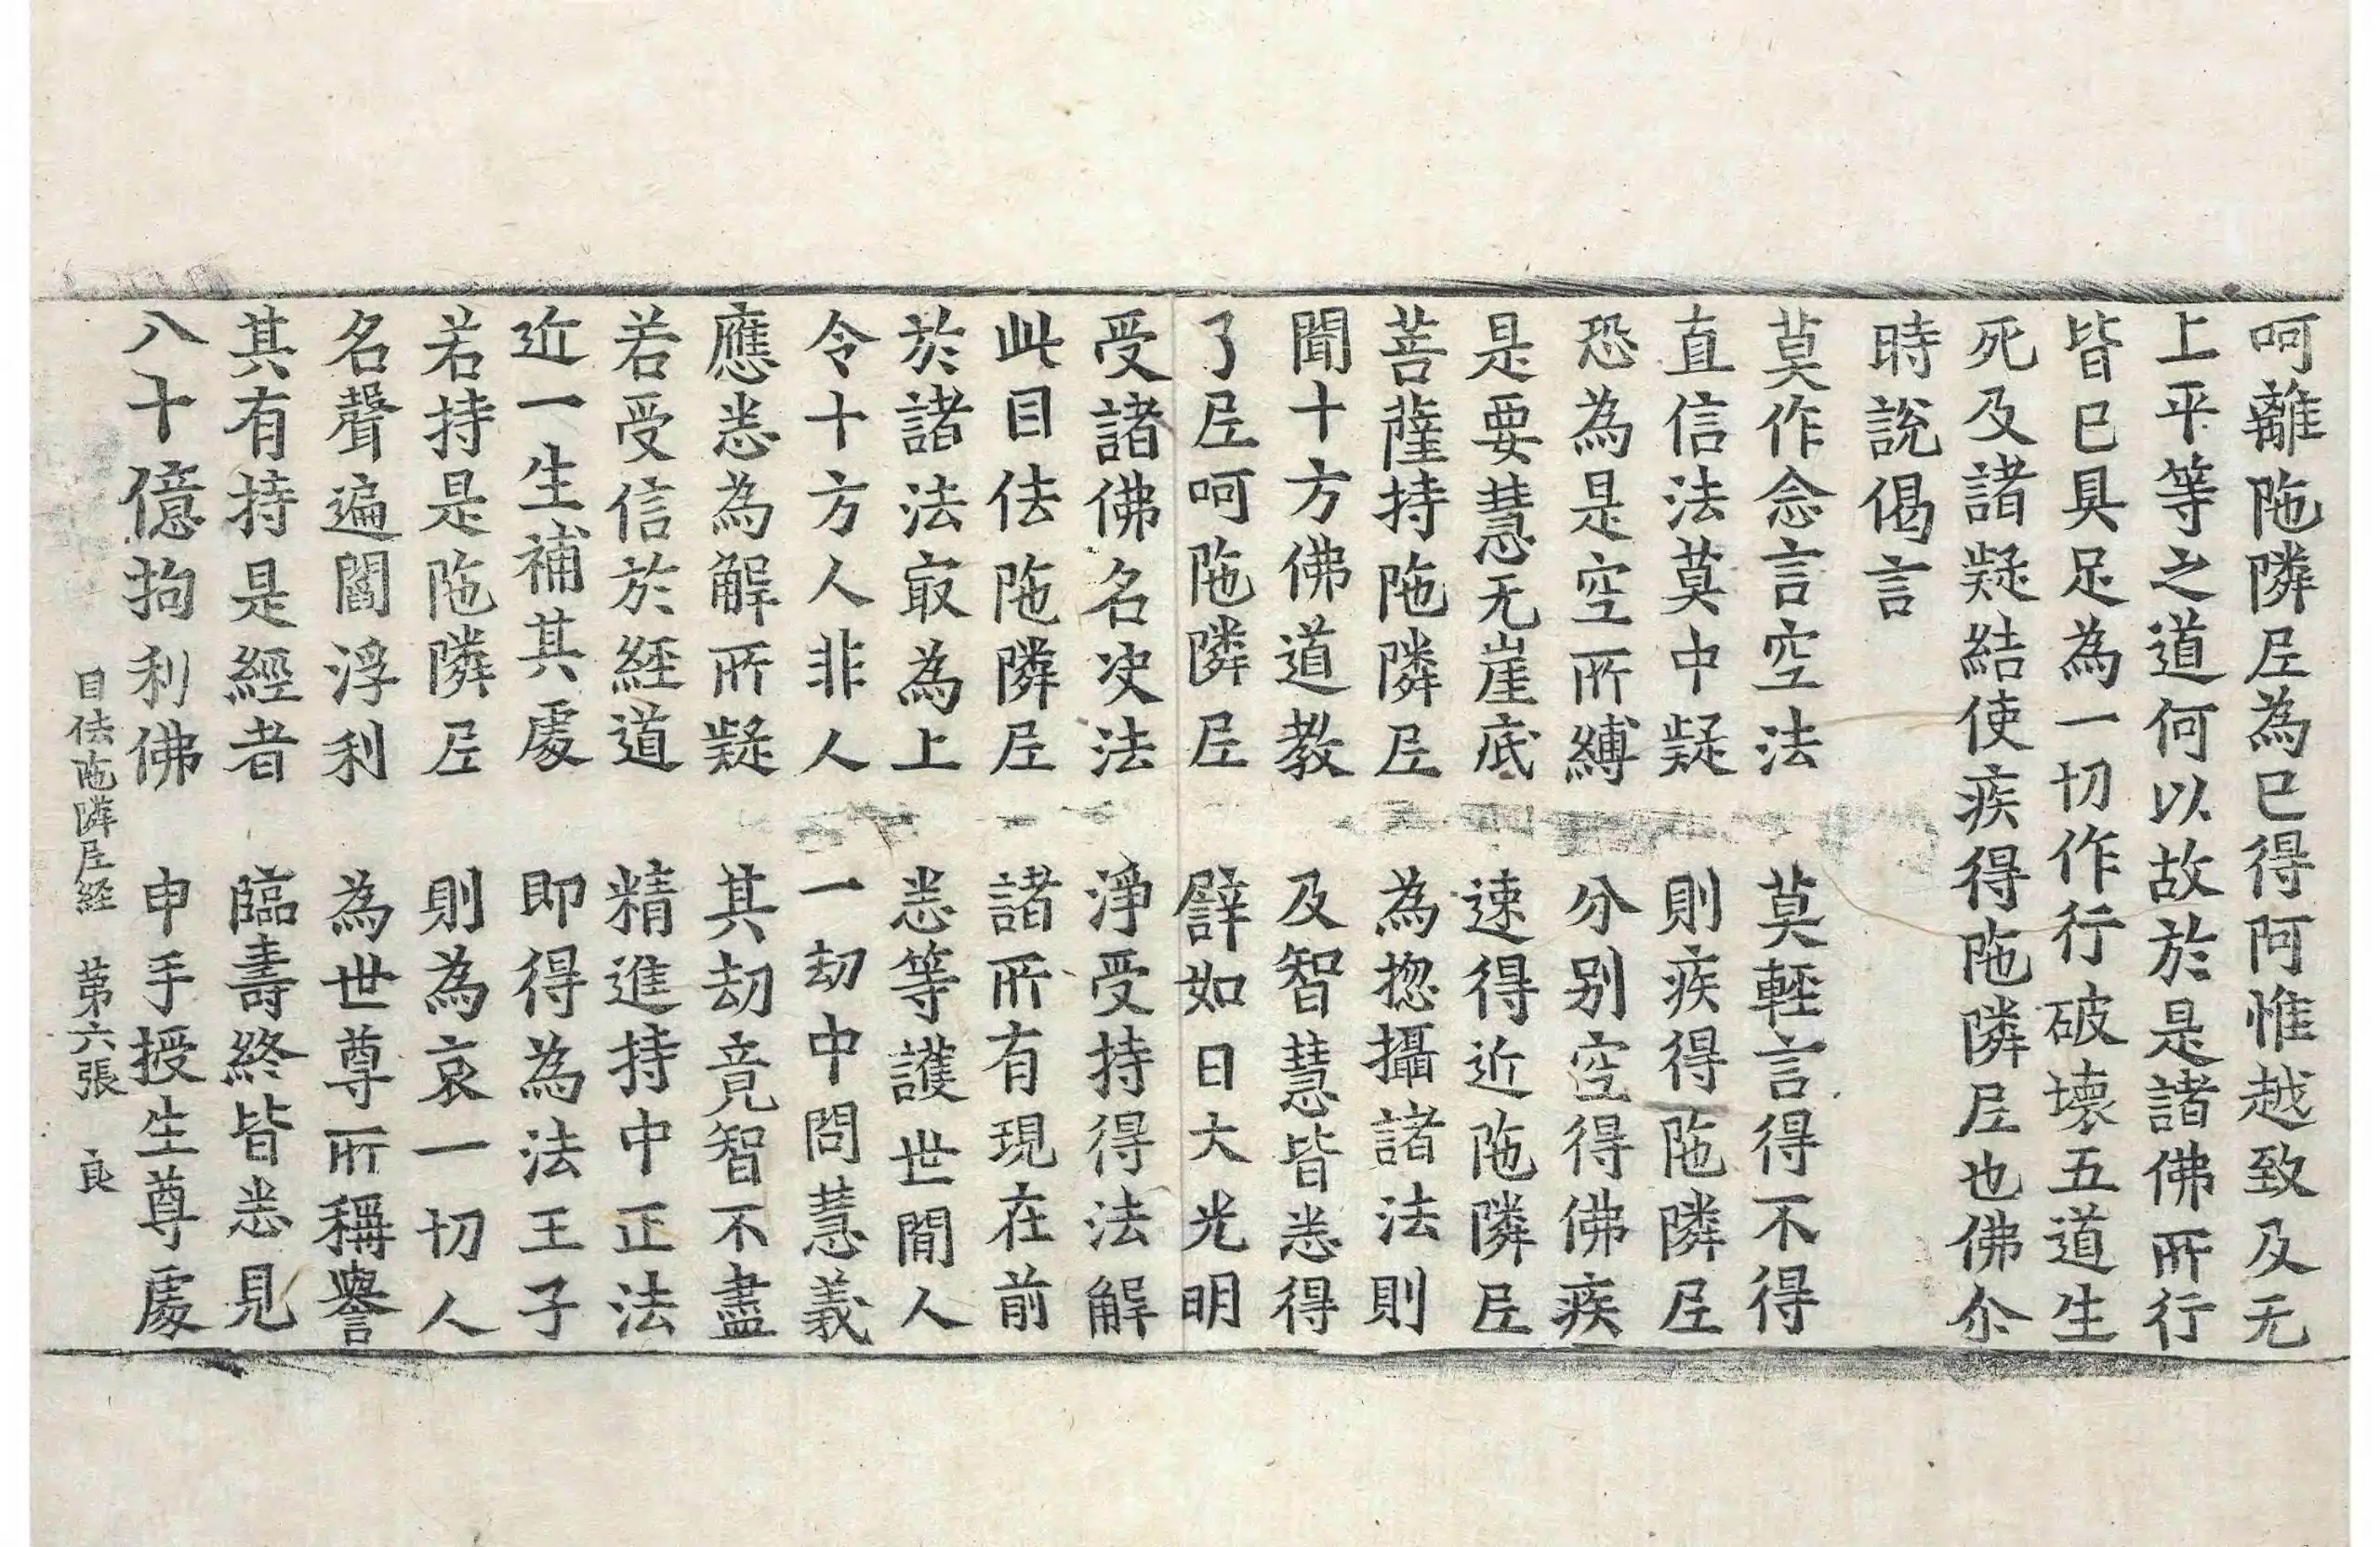 呵離陁隣𡰱為已得阿惟越致及无
上平等之道何以故於是諸佛所行
皆已具足為一切作行破壞五道生
死及諸疑結使疾得陁隣𡰱也佛尒
時說偈言
莫作念言空法　莫輕言得不得
直信法莫中疑　則疾得陁隣𡰱
恐為是空所縛　分别空得佛疾
是要慧无崖底　速得近陁隣𡰱
菩薩持陁隣𡰱　為揔攝諸法則
聞十方佛道教　及智慧皆悉得
了𡰱呵陁隣𡰱　譬如日大光明
受諸佛名决法　淨受持得法解
此目佉陁隣𡰱　諸所有現在前
於諸法㝡為上　悉等護世閒人
令十方人非人　一劫中問慧義
應悉為解所疑　其劫竟智不盡
若受信於経道　精進持中正法
近一生補其處　即得為法王子
若持是陁隣𡰱　則為哀一切人
名聲遍閻浮利　為世尊所稱譽
其有持是經者　臨壽終皆悉見
八十億拘利佛　申手授生尊處
目佉陁隣𡰱経　苐六張　良